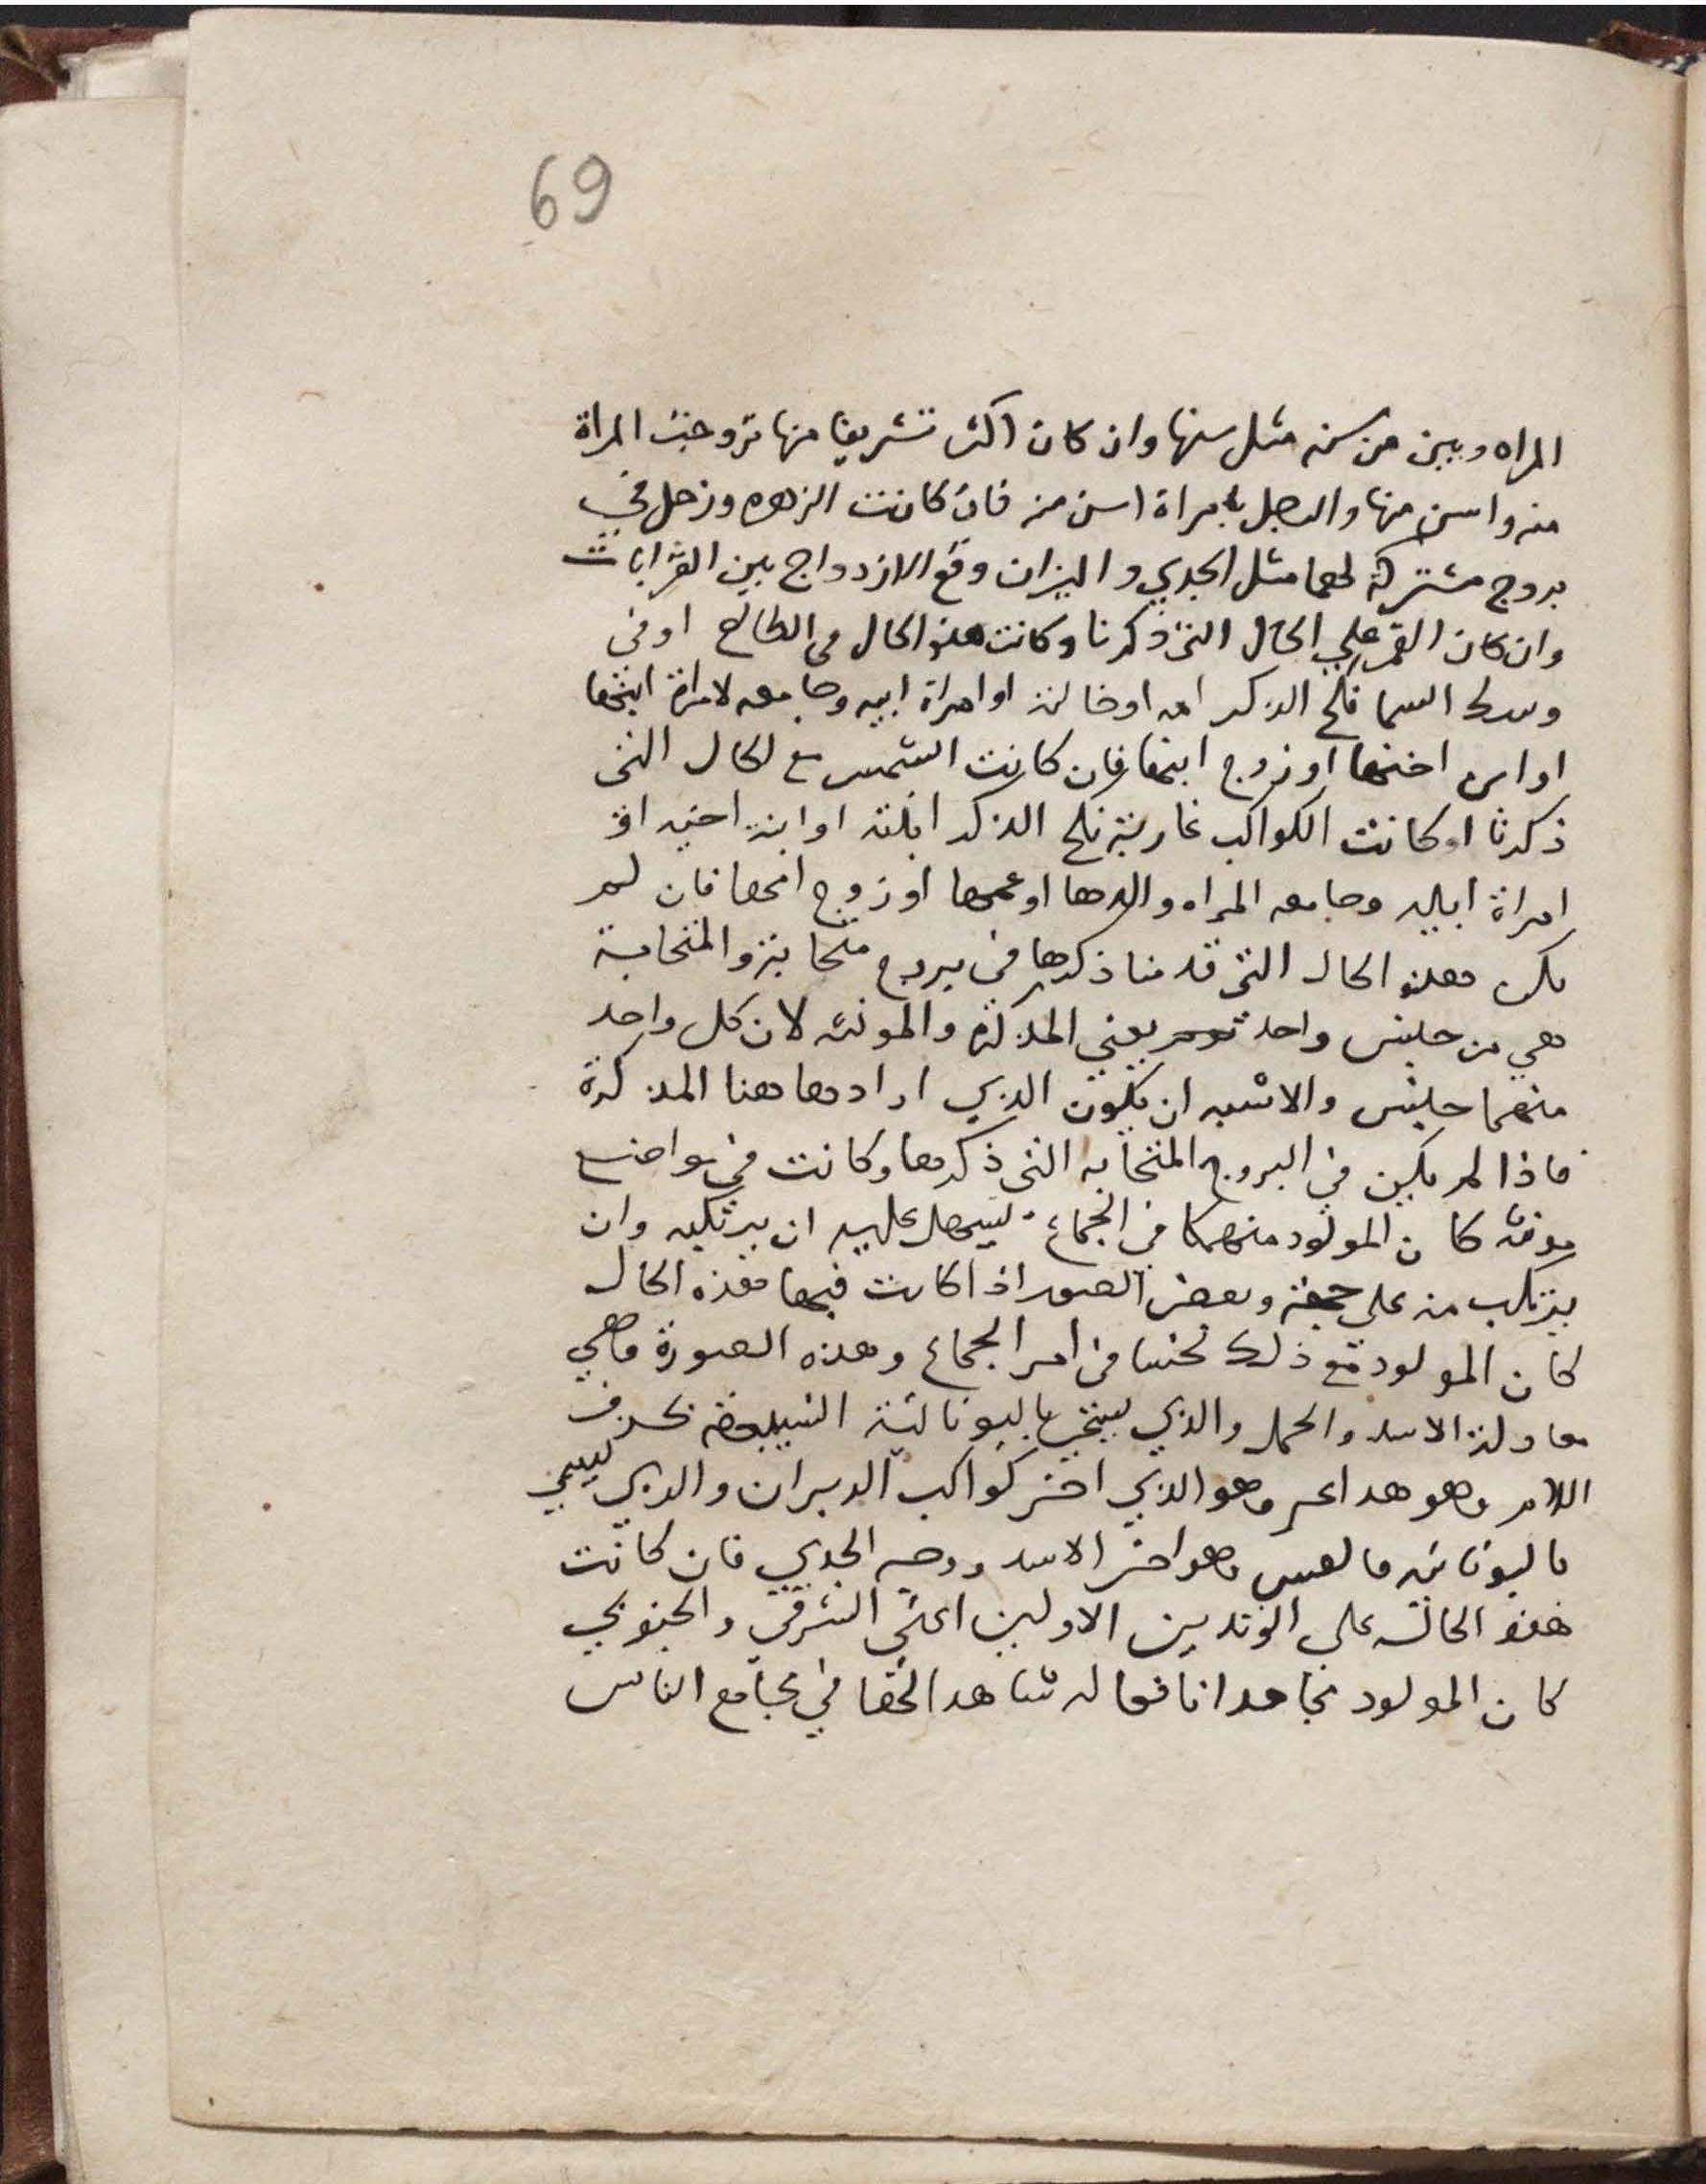 69
المراه وبين من سنه مثل سنها وان كان اكثر تشريقا منها تزوجت المراة
منه واسن منها والرجل بامراة اسن منه فان كانت الزهره وزحل في
بروج مشتركة لهما مثل الجدي والميزان وقع الازدواج بين القرابات
وان كان القمر علي الحال التي ذكرنا وكانت هذه الحال في الطالع او في
وسط السما نكح الذكر امه او خالته او امراة ابيه وجامعه لامراة ابنها
او ابن اختها او زوج ابنتها فان كانت الشمس مع الحال التي
ذكرنا او كانت الكواكب غاربة نكح الذكر ابنته او ابنة اخيه او
امراة ابنه وجامعه المراه والدها او عمها او زوج امها فان لم
يكن هذه الحال التي قدمنا ذكرها في بروج متحابة والمتحابة
هي من جنس واحد يعني المذكرة والمونثه لان كل واحد
منهما جنس والاشبه ان يكون الذي ارادها هنا المذكرة
فاذا لم يكن في البروج المتحابه التي ذكرها وكانت في مواضع
مونثه كان المولود منهمكا في الجماع يسهل عليه ان يرتكبه وان
يرتكب منه علي جهة وبعض الصور اذا كانت فيها هذه الحال
كان المولود مع ذلك نجسا في امر الجماع وهذه الصورة وهي
الاسد والحمل والذي باليونانية بحرف
اللام وهو وهو الذي اخر كواكب الدبران والذي يسمي
باليونانيه وهو اخر الاسد ووجه الجدي فان كانت
هذه الحال علي الوتدين الاولين اعني الشرقي والجنوبي
كان المولود في مجامع الناس